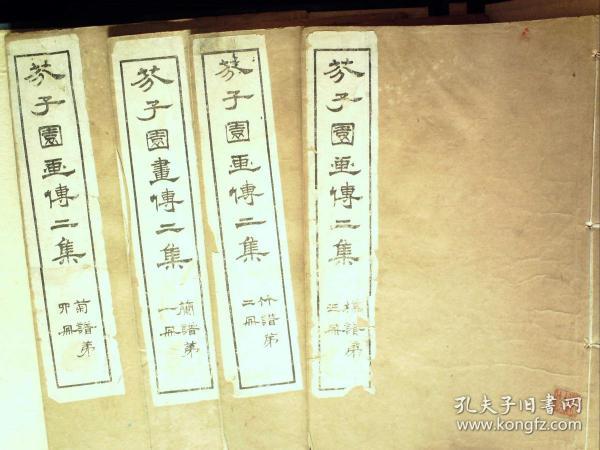 芥子園畫傳二集
菊譜第
四冊
芥子園畫傳二集
蘭譜第
一冊
芥子園畫傳二集
竹譜第
二冊
芥子園畫傳二集
梅譜第
三冊
孔夫子旧书网
www.kongfz.com